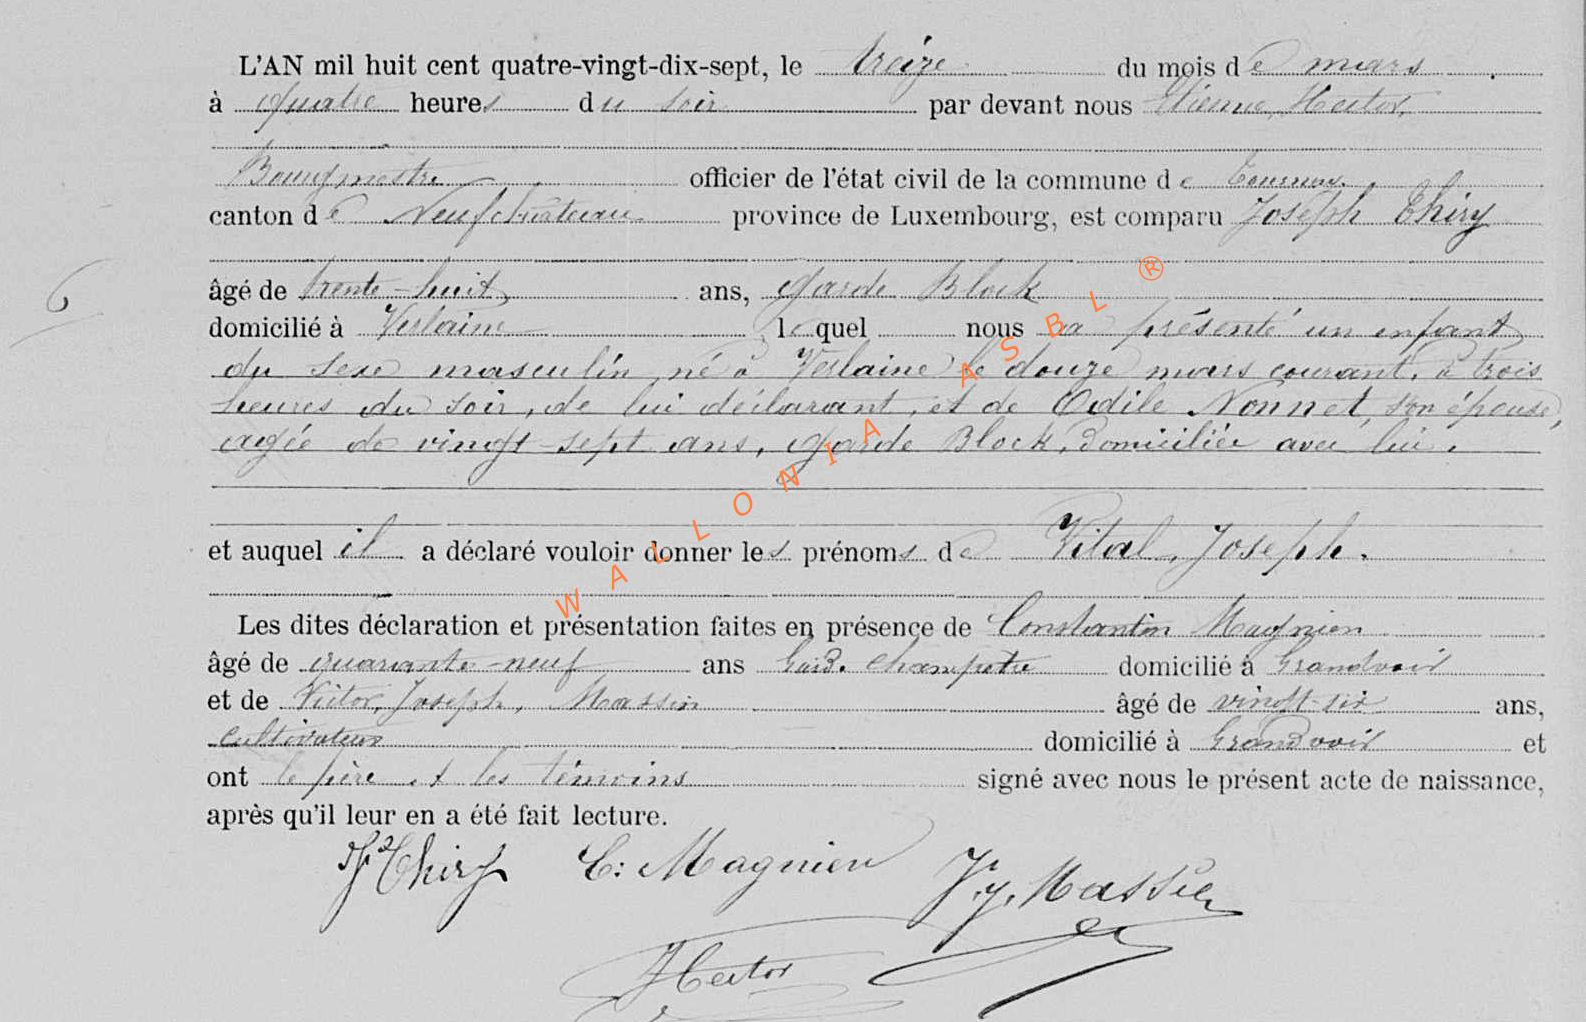 L'AN mil huit cent quatre-vingt-dix-sept, le treize du mois de mars
à quatre heures du soir par devant nous Etienne, Hector,
Bourgmestre officier de l'état civil de la commune de Tournay.
canton de Neufchateau province de Luxembourg, est comparu Joseph Thiry
6
âgé de trente-huit ans, garde Block
domicilié à Verlaine lequel nous a présenté un enfant
du sexe masculin, né à Verlaine le douze mars courant, à trois
heures du soir, de lui déclarant, et de Odile Nonnet, son épouse,
agée de vingt-sept ans, garde Block, domiciliée avec lui.
et auquel il a déclaré vouloir donner les prénoms de Vital, Joseph.
Les dites déclaration et présentation faites en présence de Constantin Magnien
âgé de quarante-neuf ans Gard. champetre domicilié à Grandvoir
et de Victor, Joseph, Massin âgé de vingt-six ans,
cultivateur domicilié à Grandvoir et
ont le père et les témoins signé avec nous le présent acte de naissance,
après qu'il leur en a été fait lecture.
Jh Thiry C: Magnien V. J. Massin
Hector
WALLONIA ASBL ®